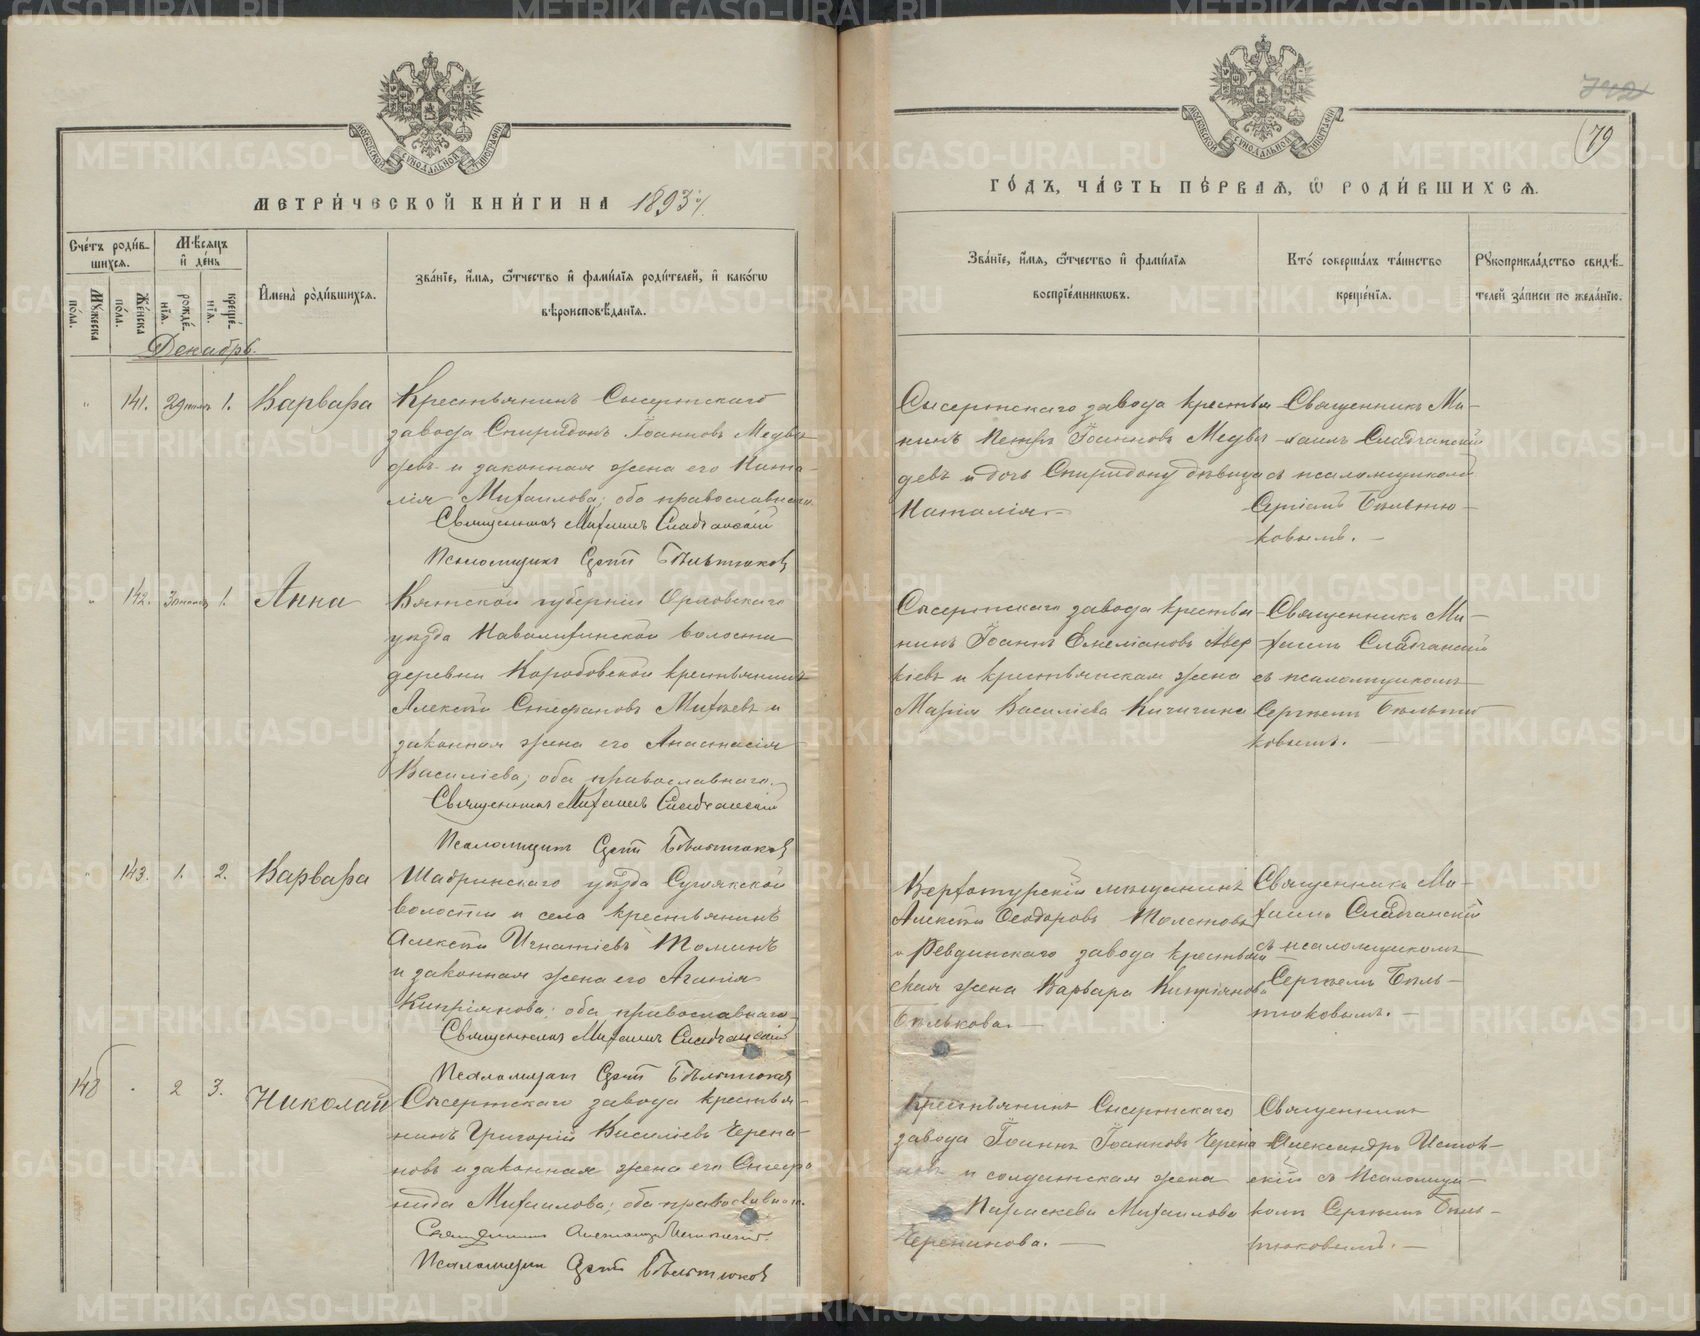 МЕТРИ́ЧЕСКОЙ КНИ́ГИ НА 1893 г.
Сче́тъ роди́в-
шихся.
Мѣ́сяцъ
и҆ де́нь
Мꙋ́жеска
по́ла.
Же́нска
по́ла.
рожде́-
нїя.
креще́-
нїя.
И҆мена̀ роди́вшихся.
Зва́нїе, и҆́мя, ѻ҆́тчество и҆ фами́лїя роди́телей, и҆ како́гѡ
вѣроисповѣ́данїя.
Декабрь.
141. 29 1. Варвара
Крестьянинъ Сысертскаго
завода Спиридонъ Іоанновъ Медвѣ-
девъ и законная жена его Ната-
лія Михаилова; оба православнаго.
Священникъ Михаилъ Сладчанскій
Псаломщикъ Сергѣй Бѣльтюковъ
142. 30 1. Анна
Вятской губерніи Орловскаго
уѣзда волости
деревни Коробовской крестьянинъ
Алексѣй Стефановъ Михѣевъ и
законная жена его Анастасія
Василіева; оба православнаго.
Священникъ Михаилъ Сладчанскій
Псаломщикъ Сергѣй Бѣльтюковъ
143. 1. 2. Варвара
Шадринскаго уѣзда Сугоякской
волости и села крестьянинъ
Алексѣй Игнатіевъ Томинъ
и законная жена его Агапія
Кипріянова; оба православнаго.
Священникъ Михаилъ Сладчанскій
Псаломщикъ Сергѣй Бѣльтюковъ
148 2 3. Николай
Сысертскаго завода крестья-
нинъ Григорій Василіевъ Черепа-
новъ и законная жена его Степа-
нида Михаилова; оба православнаго.
Священникъ Александръ
Псаломщикъ Сергѣй Бѣльтюковъ
742
79
ГО́ДЪ, ЧА́СТЬ ПЕ́РВАЯ, Ѽ РОДИ́ВШИХСЯ.
Зва́нїе, и҆́мя, ѻ҆́тчество и҆ фами́лїя
воспрїе́мникѡвъ.
Кто̀ соверша́лъ та́инство
креще́нїя.
Рꙋкоприкла́дство свидѣ́-
телей за́писи по жела́нїю.
Сысертскаго завода крестья-
нинъ Петръ Іоанновъ Медвѣ-
девъ и дочь Спиридону дѣвица
Наталія.
Священникъ Ми-
хаилъ Сладчанскій
съ псаломщикомъ
Сергіемъ Бѣльтю-
ковымъ.
Сысертскаго завода крестья-
нинъ Іоаннъ Емеліановъ Авер-
кіевъ и крестьянская жена
Марія Василіева Кичигина
Священникъ Ми-
хаилъ Сладчанскій
съ псаломщикомъ
Сергѣемъ Бѣльтю-
ковымъ.
Верхотурскій мѣщанинъ
Алексѣй Ѳеодоровъ Толстовъ
и Ревдинскаго завода крестьян-
ская жена Варвара Кипріянова
Бѣлькова.
Священникъ Ми-
хаилъ Сладчанскій
съ псаломщикомъ
Сергѣемъ Бѣль-
тюковымъ.
Крестьянинъ Сысертскаго
завода Іоаннъ Іоанновъ Черепа-
новъ и солдатская жена
Параскева Михаилова
Черепанова.
Священникъ
Александръ
съ Псаломщи-
комъ Сергѣемъ Бѣль-
тюковымъ.
METRIKI.GASO-URAL.RU